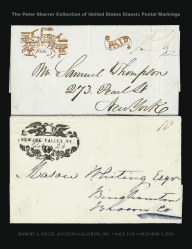 The Peter Skurrer Collection of United States Classic Postal Markings
PAID
Mr. Samuel Thompson
273 Pearl St
New York
NEWARK VALLEY, N.Y.
10
Mason Whiting Esqr
Binghamton
Broom Co
ROBERT A. SIEGEL AUCTION GALLERIES, INC.